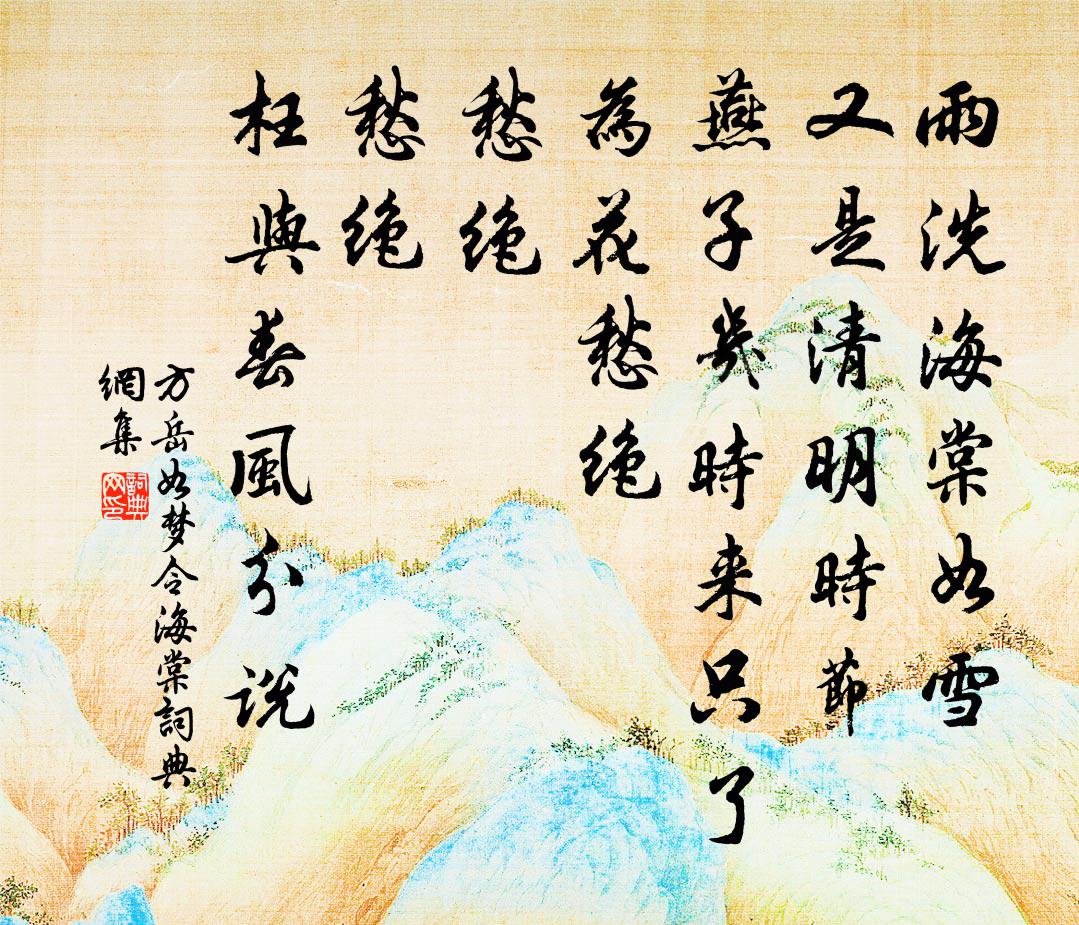 雨洗海棠如雪
又是清明時節
燕子幾時来只了
為花愁绝
愁绝
愁绝
枉與春風分说
方岳如梦令海棠詞典
網集
詞典
网印